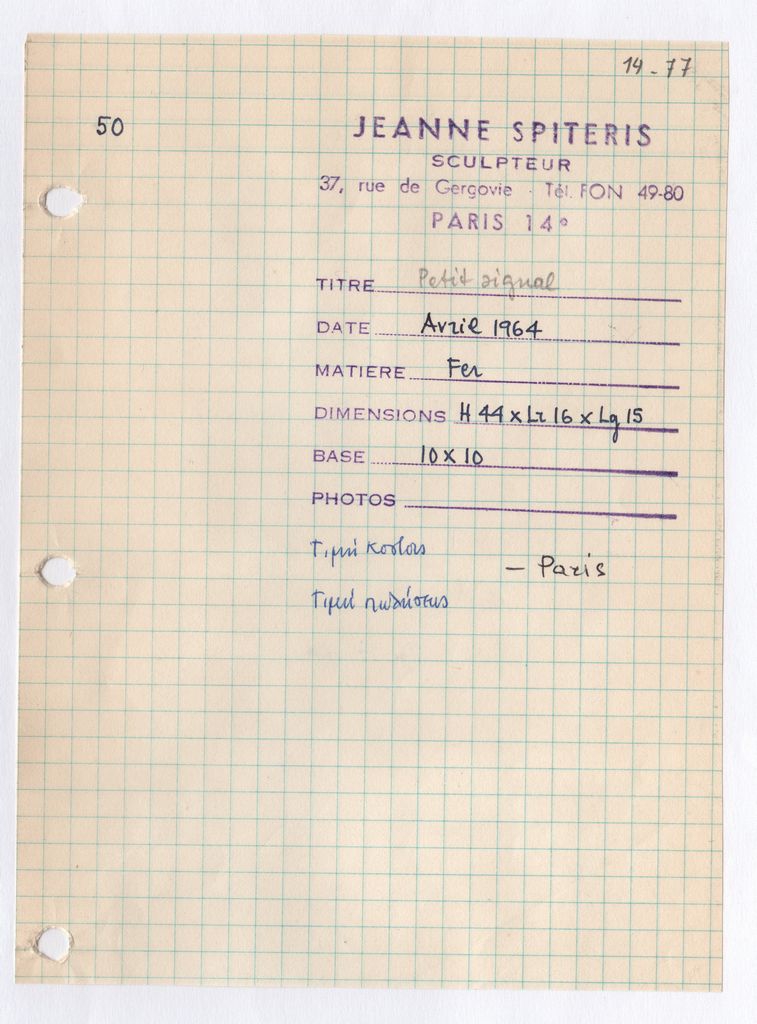 14-77
50
JEANNE SPITERIS
SCULPTEUR
37, rue de Gergovie - Tél. FON 49-80
PARIS 14°
TITRE Petit signal
DATE Avril 1964
MATIERE Fer
DIMENSIONS H 44 x Lr 16 x Lg 15
BASE 10 x 10
PHOTOS
Τιμή κοστους
— Paris
Τιμή πωλήσεως